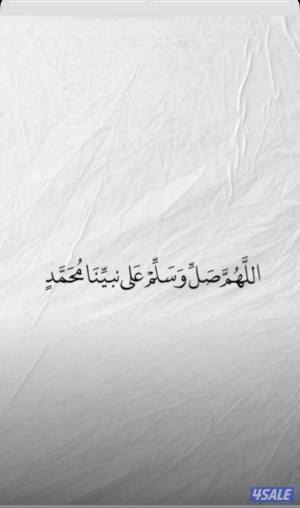 اللَّهُمَّ صَلِّ وَسَلِّمْ عَلَى نَبِيِّنَا مُحَمَّدٍ
4SALE